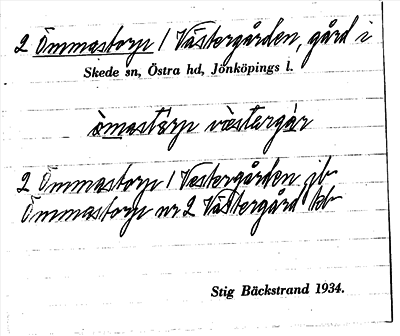 2 Ömmastorp / Västergården, gård i
Skede sn, Östra hd, Jönköpings l.
òmastàrp vèstergár
2 Ömmastorp / Vestergården jb
Ömmastorp nr 2 Västergård kb
Stig Bäckstrand 1934.